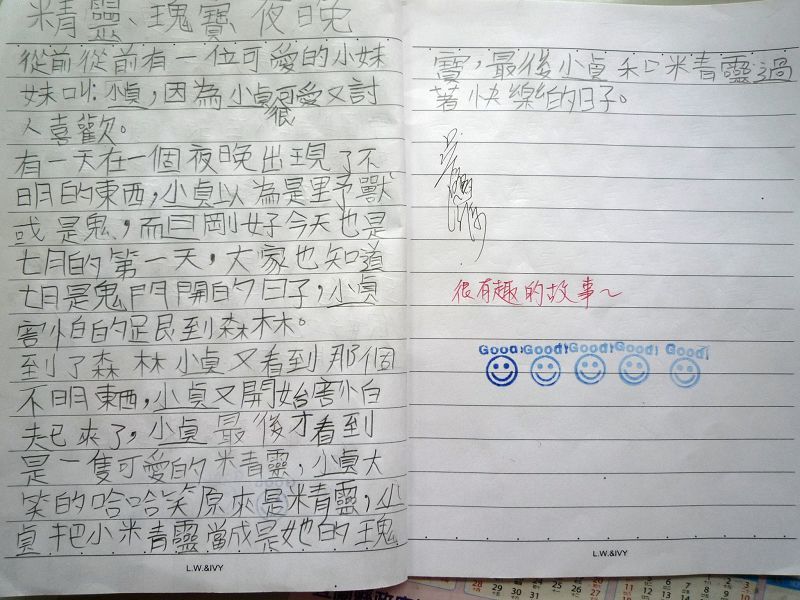 精靈、瑰寶 夜晚
從前從前有一位可愛的小妹
妹叫小貞,因為小貞很可愛又討
人喜歡。
有一天在一個夜晚出現了不
明的東西,小貞以為是野獸
或是鬼,而且剛好今天也是
七月的第一天,大家也知道
七月是鬼門開的日子,小貞
害怕的跟到森林。
到了森林小貞又看到那個
不明東西,小貞又開始害怕
起來了,小貞最後才看到
是一隻可愛的精靈,小貞大
笑的哈哈笑原來是精靈,小
貞把小精靈當成是她的瑰
L.W.&IVY
寶,最後小貞和精靈過
著快樂的日子。
很有趣的故事~
Good! Good! Good! Good! Good!
L.W.&IVY